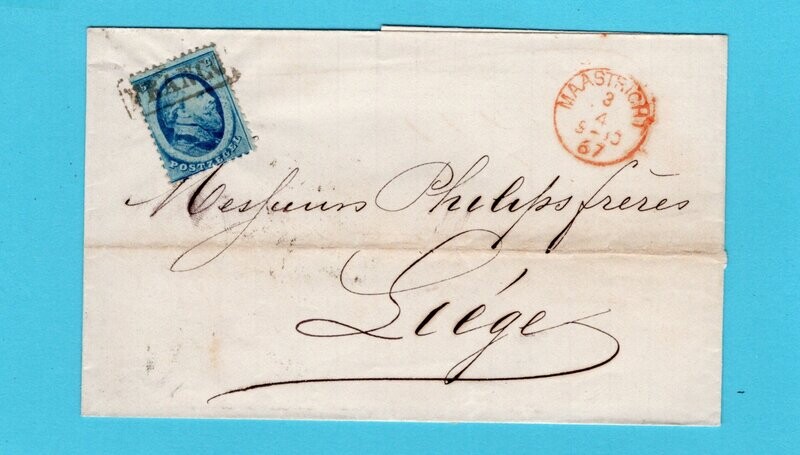 FRANCO
POSTZEGEL
MAASTRICHT
3
4
9-10
67
Messieurs Philips frères
Liége